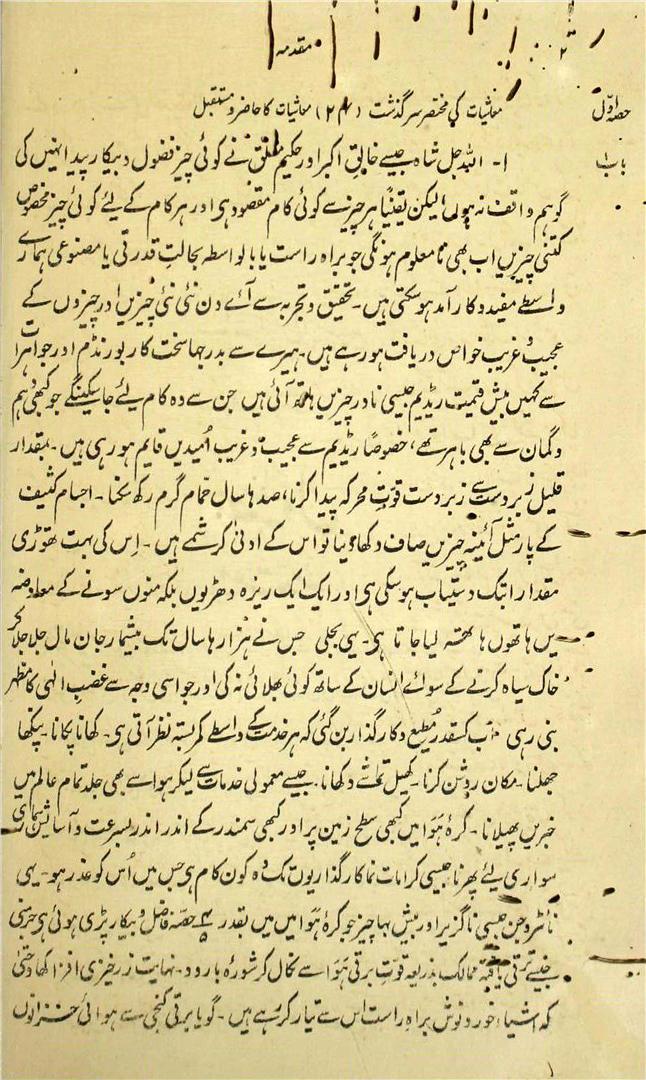 ۲
مقدمہ
حصہ اوّل
معاشیات کی مختصر سرگذشت (۲) معاشیات کا حاضر و مستقبل
باب ۱
۱- اللہ جل شاہ جیسے خالق اکبر اور حکیم مطلق نے کوئی چیز فضول و بیکار پیدا نہیں کی
گو ہم واقف نہ ہوں لیکن یقیناً ہر چیز سے کوئی کام مقصود ہی اور ہر کام کے لیئے کوئی چیز مخصوص
کتنی چیزیں اب بھی نا معلوم ہونگی جو براہ راست یا بالواسطہ بحالتِ قدرتی یا مصنوعی ہمارے
واسطے مفید و کارآمد ہوسکتی ہیں۔ تحقیق و تجربہ سے آئے دن نئی نئی چیزیں اور چیزوں کے
عجیب و غریب خواص دریافت ہو رہے ہیں۔ ہیرے سے بدرجہا سخت کاربورنڈم اور جواہرات
سے کہیں بیش قیمت ریڈیم جیسی نادر چیزیں ہاتھ آئی ہیں جن سے وہ کام لیئے جا سکینگے جو کبھی وہم
و گمان سے بھی باہر تھے، خصوصاً ریڈیم سے عجیب و غریب اُمیدیں قایم ہو رہی ہیں۔ بمقدار
قلیل زبردست سے زبردست قوتِ محرکہ پیدا کرنا، صدہا سال حمام گرم رکھ سکنا۔ اجسام کثیف
کے پار مثل آئینہ چیزیں صاف دکھا دینا تو اس کے ادنیٰ کرشمے ہیں۔ اِس کی بہت تھوڑی
مقدار ابتک دستیاب ہوسکی ہی اور ایک ایک ریزہ دھڑیوں بلکہ منوں سونے کے معاوضہ
میں ہاتھوں ہاتھ لیا جاتا ہی۔ یہی بجلی جس نے ہزارہا سال تک بیشمار جان مال جلا جلا کر
خاک سیاہ کرنے کے سوائے انسان کے ساتھ کوئی بھلائی نہ کی اور جو اسی وجہ سے غضبِ الٰہی کا مظہر
بنی رہی اب کسقدر مُطیع و کارگذار بن گئی کہ ہر خدمت کے واسطے کمربستہ نظر آتی ہی۔ کھانا پکانا۔ پنکھا
جھلنا۔ مکان روشن کرنا۔ کھیل تماشے دکھانا۔ جیسے معمولی خدمات سے لیکر ہوا سے بھی جلد تمام عالم میں
خبریں پھیلانا۔ کرۂ ہَوَا میں کبھی سطح زمین پر اور کبھی سمندر کے اندر اندر بسرعت و آسایش ہماری
سواری لیئے پھرنا جیسی کرامات نما کارگذاریوں تک وہ کون کام ہی جس میں اُس کو عذر ہو۔ یہی
نائٹروجن جیسی ناگزیر اور بیش بہا چیز جو کرۂ ہَوَا میں میں بقدر ۴/۵ حصّہ فاضل و بیکار پڑی ہوئی ہی جرمنی
جیسے ترقی یافتہ ممالک بذریعہ قوتِ برقی ہَوَا سے نکال کر شورہ بارود۔ نہایت زرخیزی افزا کھاد حتٰی
کہ اشیاء خورد و نوش براہِ راست اس سے تیار کر رہے ہیں۔ گویا برقی کنجی سے ہوائی خزانوں
۱